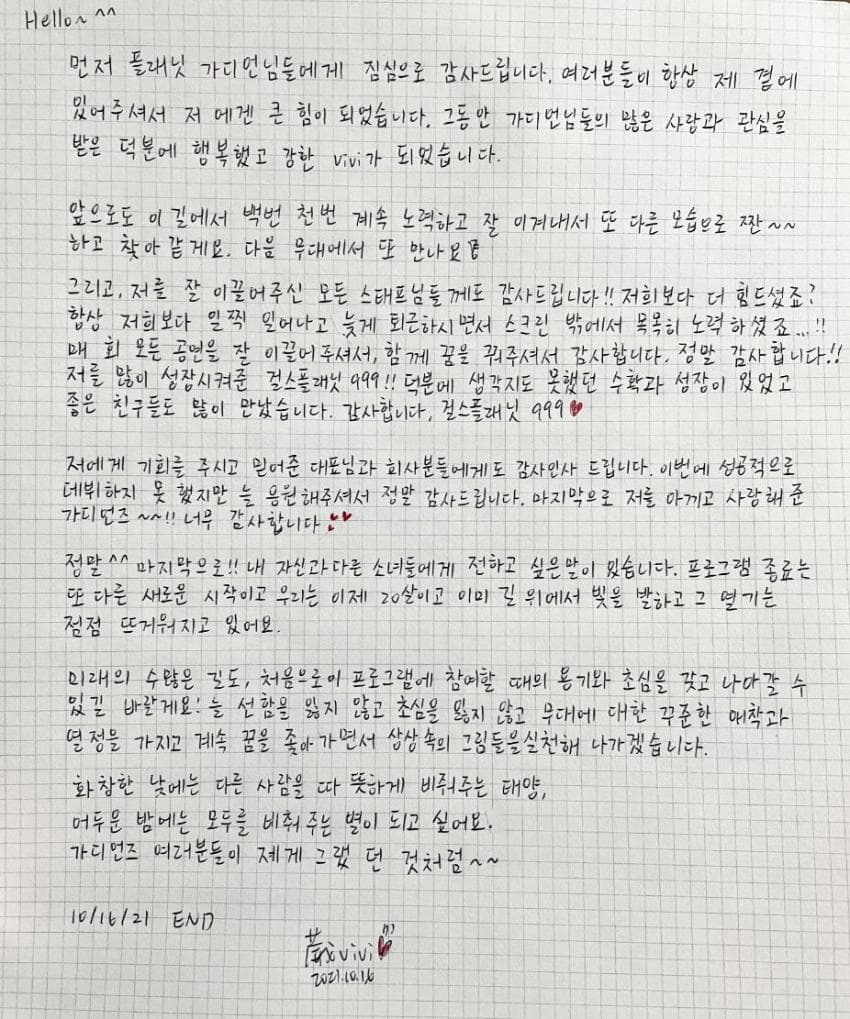 Hello~ ^^
먼저 플래닛 가디언님들에게 짐심으로 감사드립니다. 여러분들이 항상 제 곁에
있어주셔서 저 에겐 큰 힘이 되었습니다. 그동안 가디언님들의 많은 사랑과 관심을
받은 덕분에 행복했고 강한 vivi가 되었습니다.
앞으로도 이 길에서 백번 천번 계속 노력하고 잘 이겨내서 또 다른 모습으로 짠~~
하고 찾아 갈게요. 다음 무대에서 또 만나요
그리고, 저를 잘 이끌어주신 모든 스태프님들께도 감사드립니다!! 저희보다 더 힘드셨죠?
항상 저희보다 일찍 일어나고 늦게 퇴근하시면서 스크린 밖에서 묵묵히 노력하셨죠...!!
매 회 모든 공연을 잘 이끌어주셔서, 함께 꿈을 꿔주셔서 감사합니다. 정말 감사합니다!!
저를 많이 성장시켜준 걸스플래닛 999!! 덕분에 생각지도 못했던 수확과 성장이 있었고
좋은 친구들도 많이 만났습니다. 감사합니다, 걸스플래닛 999♥
저에게 기회를 주시고 믿어준 대표님과 회사분들에게도 감사인사 드립니다. 이번에 성공적으로
데뷔하지 못 했지만 늘 응원해주셔서 정말 감사드립니다. 마지막으로 저를 아끼고 사랑해 준
가디언즈 ~~!! 너무 감사합니다♥♥
정말^^ 마지막으로!! 내 자신과 다른 소녀들에게 전하고 싶은말이 있습니다. 프로그램 종료는
또 다른 새로운 시작이고 우리는 이제 20살이고 이미 길 위에서 빛을 발하고 그 열기는
점점 뜨거워지고 있어요.
미래의 수많은 길도, 처음으로 이 프로그램에 참여할 때의 용기와 초심을 갖고 나아갈 수
있길 바랄게요! 늘 선함을 잃지 않고 초심을 잃지 않고 무대에 대한 꾸준한 애착과
열정을 가지고 계속 꿈을 좇아가면서 상상속의 그림들을 실천해 나가겠습니다.
화창한 낮에는 다른 사람을 따뜻하게 비춰주는 태양,
어두운 밤에는 모두를 비춰주는 별이 되고 싶어요.
가디언즈 여러분들이 제게 그랬 던 것처럼~~
10/16/21 END
vivi♥
2021.10.16